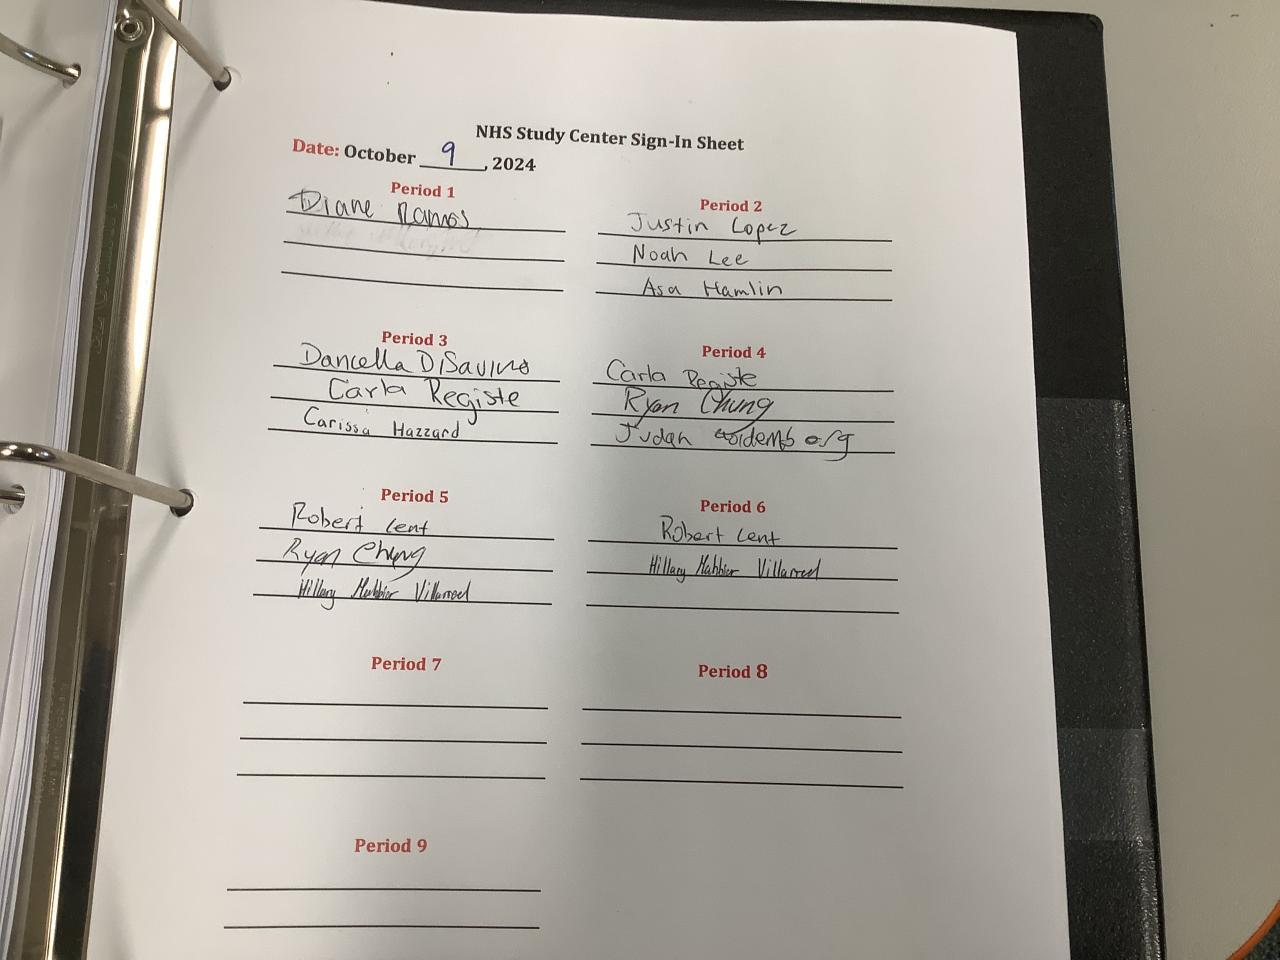 NHS Study Center Sign-In Sheet
Date: October 9, 2024
Period 1
Diane Ramos
Period 2
Justin Lopez
Noah Lee
Asa Hamlin
Period 3
Daniella DiSavino
Carla Registe
Carissa Hazzard
Period 4
Carla Registe
Ryan Chung
Judah
Period 5
Robert Lent
Ryan Chung
Hillary Villarreal
Period 6
Robert Lent
Hillary Villarreal
Period 7
Period 8
Period 9